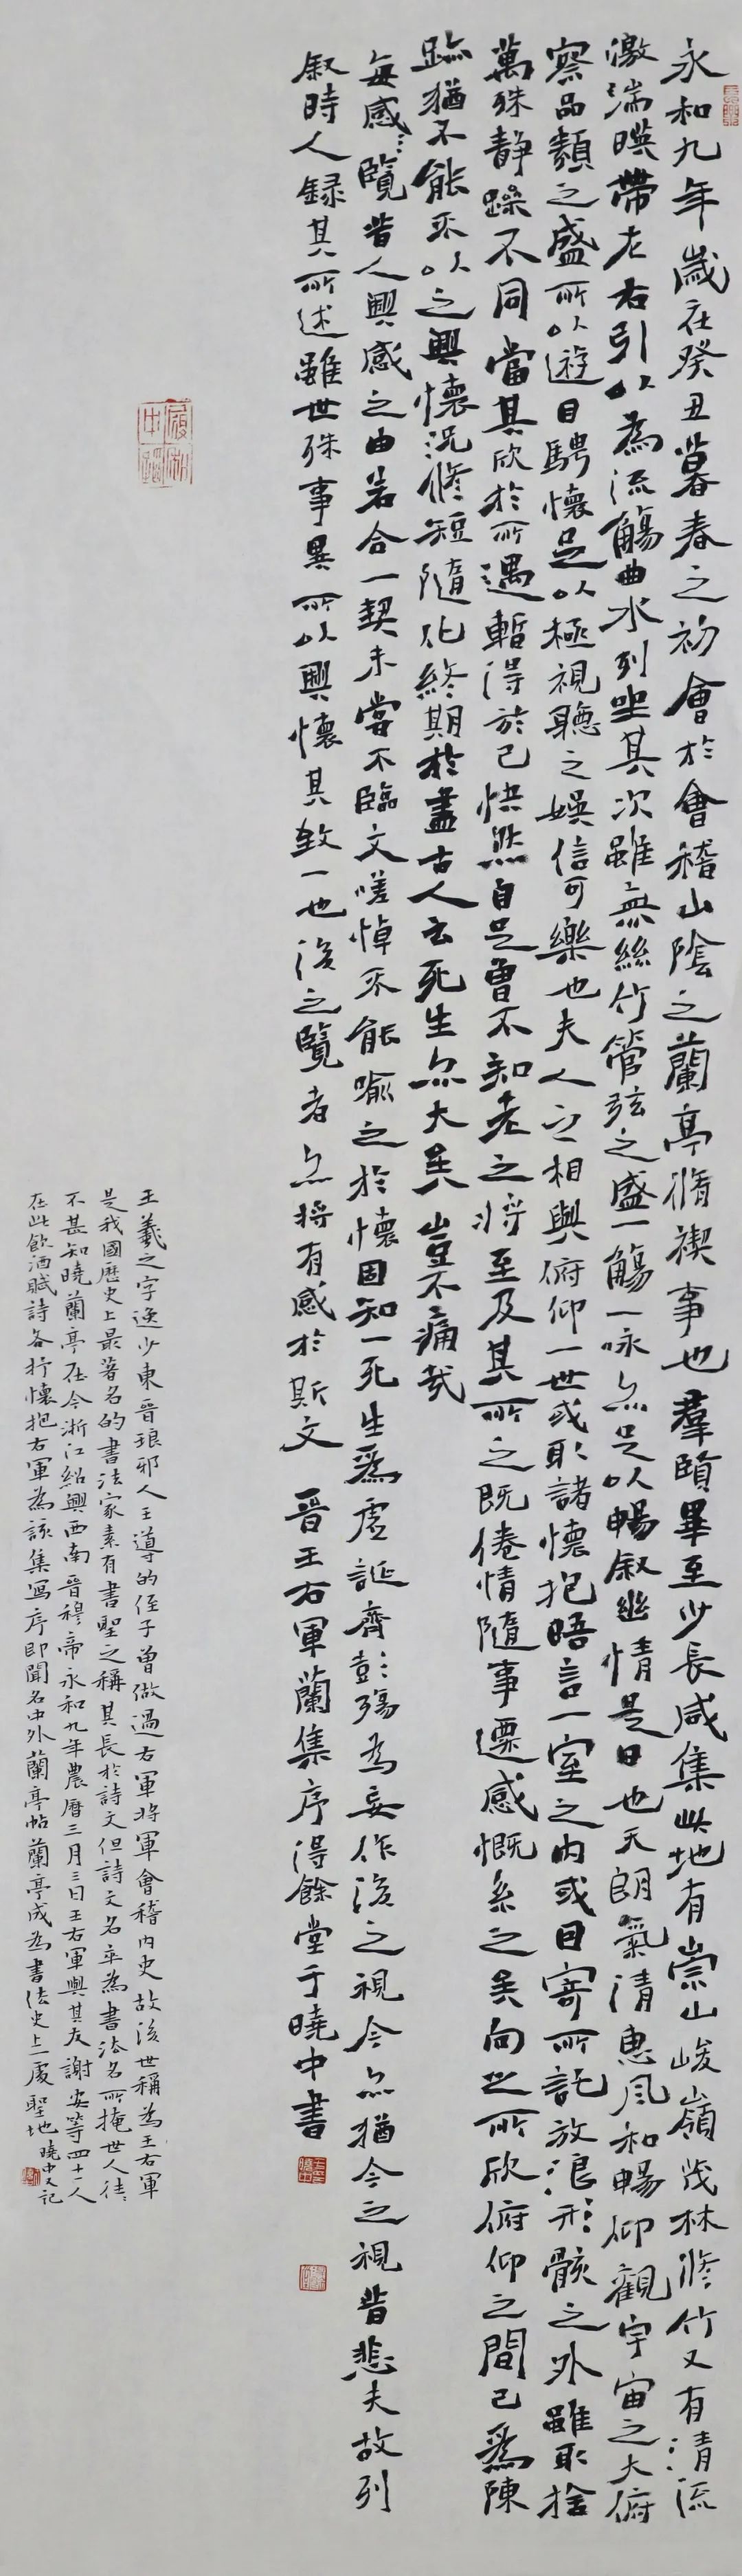 永和九年歲在癸丑暮春之初會於會稽山陰之蘭亭脩禊事也羣賢畢至少長咸集此地有崇山峻嶺茂林修竹又有清流
激湍暎帶左右引以為流觴曲水列坐其次雖無絲竹管弦之盛一觴一咏亦足以暢叙幽情是日也天朗氣清惠風和暢仰觀宇宙之大俯
察品類之盛所以遊目騁懷足以極視聽之娛信可樂也夫人之相與俯仰一世或取諸懷抱晤言一室之內或因寄所託放浪形骸之外雖取捨
萬殊静躁不同當其欣於所遇暫得於己怏然自足曾不知老之將至及其所之既倦情隨事遷感慨系之矣向之所欣俯仰之間已爲陳
跡猶不能不以之興懷況修短隨化終期於盡古人云死生亦大矣豈不痛哉
每感覽昔人興感之由若合一契未嘗不臨文嗟悼不能喻之於懷固知一死生爲虛誕齊彭殤為妄作後之視今亦猶今之視昔悲夫故列
叙時人録其所述雖世殊事異所以興懷其致一也後之覽者亦將有感於斯文 晉王右軍蘭集序得餘堂于曉中書
王羲之字逸少東晉琅邪人王導的侄子曾做過右軍將軍會稽內史故後世稱為王右軍
是我國歷史上最著名的書法家素有書聖之稱其長於詩文但詩文名卒為書法名所掩世人往往
不甚知曉蘭亭在今浙江紹興西南晉穆帝永和九年農曆三月三日王右軍與其友謝安等四十一人
在此飲酒賦詩各抒懷抱右軍為該集寫序即聞名中外蘭亭帖蘭亭成為書法史上一處聖地 曉中又記